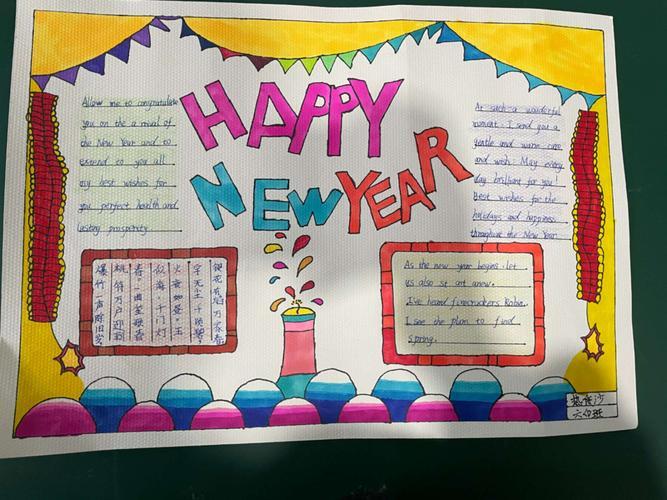 HAPPY
NEW YEAR
Allow me to congratulate
you on the a rival of
the New Year and to
extend to you all
my best wishes for
you perfect health and
lasting prosperity.
At such a wonderful
moment. I send you a
gentle and warm care
and wish. May every
day brilliant for you!
Best wishes for the
holidays and happiness
throughout the New Year
银花 万家春
宇无尘千
火 如昼 玉
似海·千门灯
春·一曲 春
桃符万户迎
爆竹一声除旧岁
As the new year begins. let
us also st art anew.
I've heard firecruckers
I see the plum to find
spring.
沙
六 班